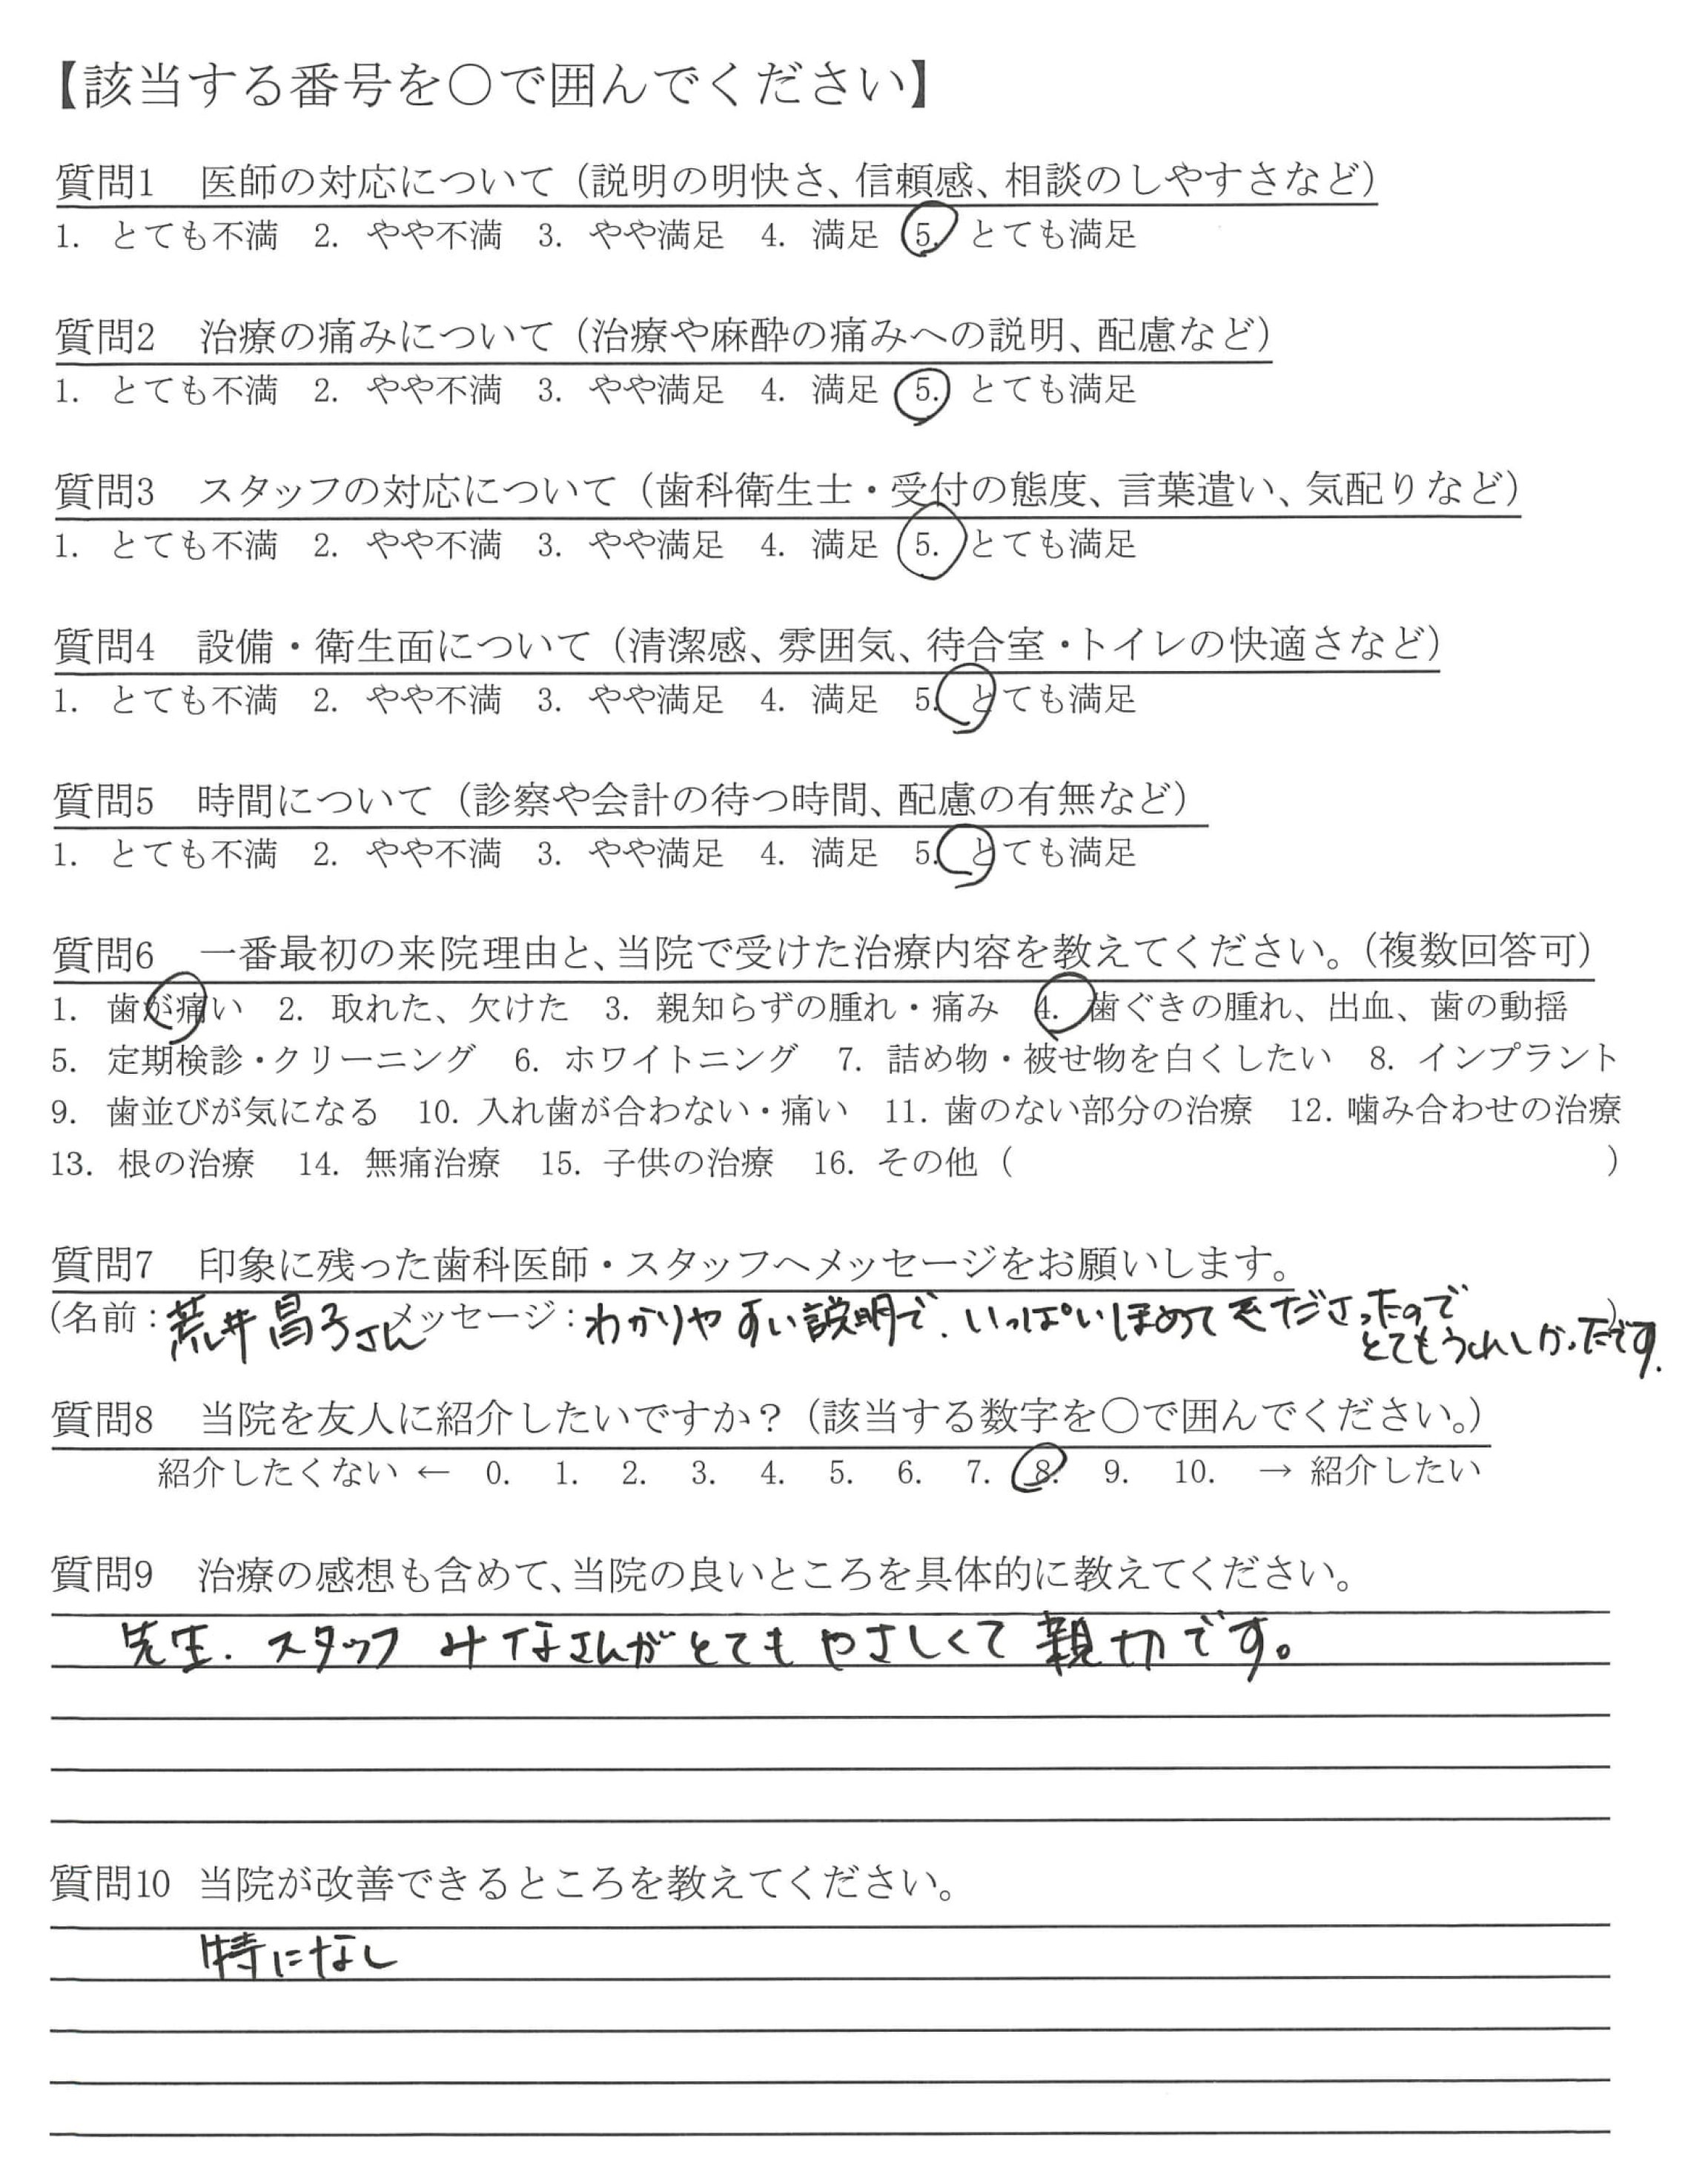 【該当する番号を○で囲んでください】
質問1　医師の対応について（説明の明快さ、信頼感、相談のしやすさなど）
1. とても不満　2. やや不満　3. やや満足　4. 満足　5. とても満足
質問2　治療の痛みについて（治療や麻酔の痛みへの説明、配慮など）
1. とても不満　2. やや不満　3. やや満足　4. 満足　5. とても満足
質問3　スタッフの対応について（歯科衛生士・受付の態度、言葉遣い、気配りなど）
1. とても不満　2. やや不満　3. やや満足　4. 満足　5. とても満足
質問4　設備・衛生面について（清潔感、雰囲気、待合室・トイレの快適さなど）
1. とても不満　2. やや不満　3. やや満足　4. 満足　5. とても満足
質問5　時間について（診察や会計の待つ時間、配慮の有無など）
1. とても不満　2. やや不満　3. やや満足　4. 満足　5. とても満足
質問6　一番最初の来院理由と、当院で受けた治療内容を教えてください。（複数回答可）
1. 歯が痛い　2. 取れた、欠けた　3. 親知らずの腫れ・痛み　4. 歯ぐきの腫れ、出血、歯の動揺
5. 定期検診・クリーニング　6. ホワイトニング　7. 詰め物・被せ物を白くしたい　8. インプラント
9. 歯並びが気になる　10. 入れ歯が合わない・痛い　11. 歯のない部分の治療　12. 噛み合わせの治療
13. 根の治療　14. 無痛治療　15. 子供の治療　16. その他（　　　）
質問7　印象に残った歯科医師・スタッフへメッセージをお願いします。
（名前：荒井昌子さん　メッセージ：わかりやすい説明で、いっぱいほめてくださったので
とてもうれしかったです.）
質問8　当院を友人に紹介したいですか？（該当する数字を○で囲んでください。）
紹介したくない ← 0. 1. 2. 3. 4. 5. 6. 7. 8. 9. 10. → 紹介したい
質問9　治療の感想も含めて、当院の良いところを具体的に教えてください。
先生. スタッフ みなさんがとても やさしくて 親切です。
質問10　当院が改善できるところを教えてください。
特になし